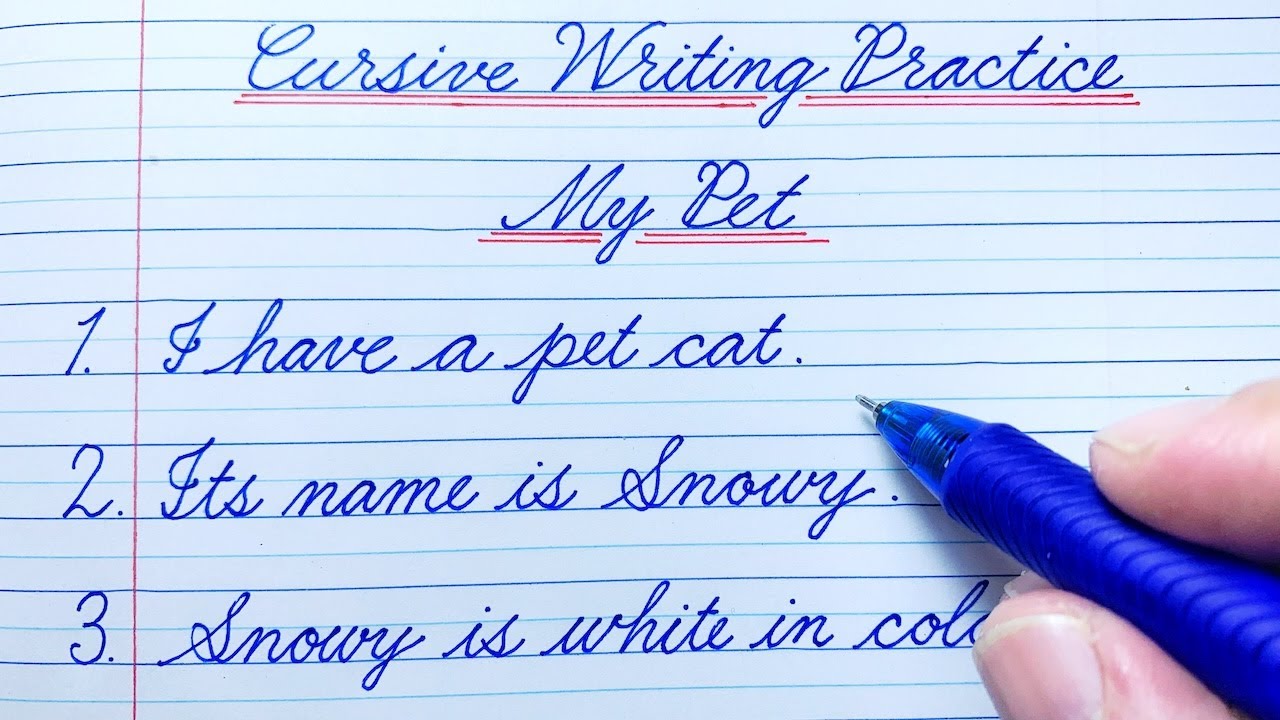 Cursive Writing Practice
My Pet
1. I have a pet cat.
2. Its name is Snowy.
3. Snowy is white in